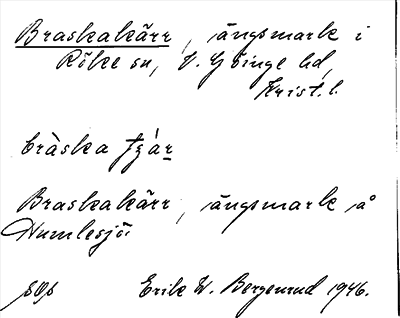 Braskakärr, ängsmark i
Röke sn, V. Göinge hd,
Krist. l.
bràska tjár
Braskakärr, ängsmark på
Humlesjö.
sOs Erik W. Bergenrud 1946.